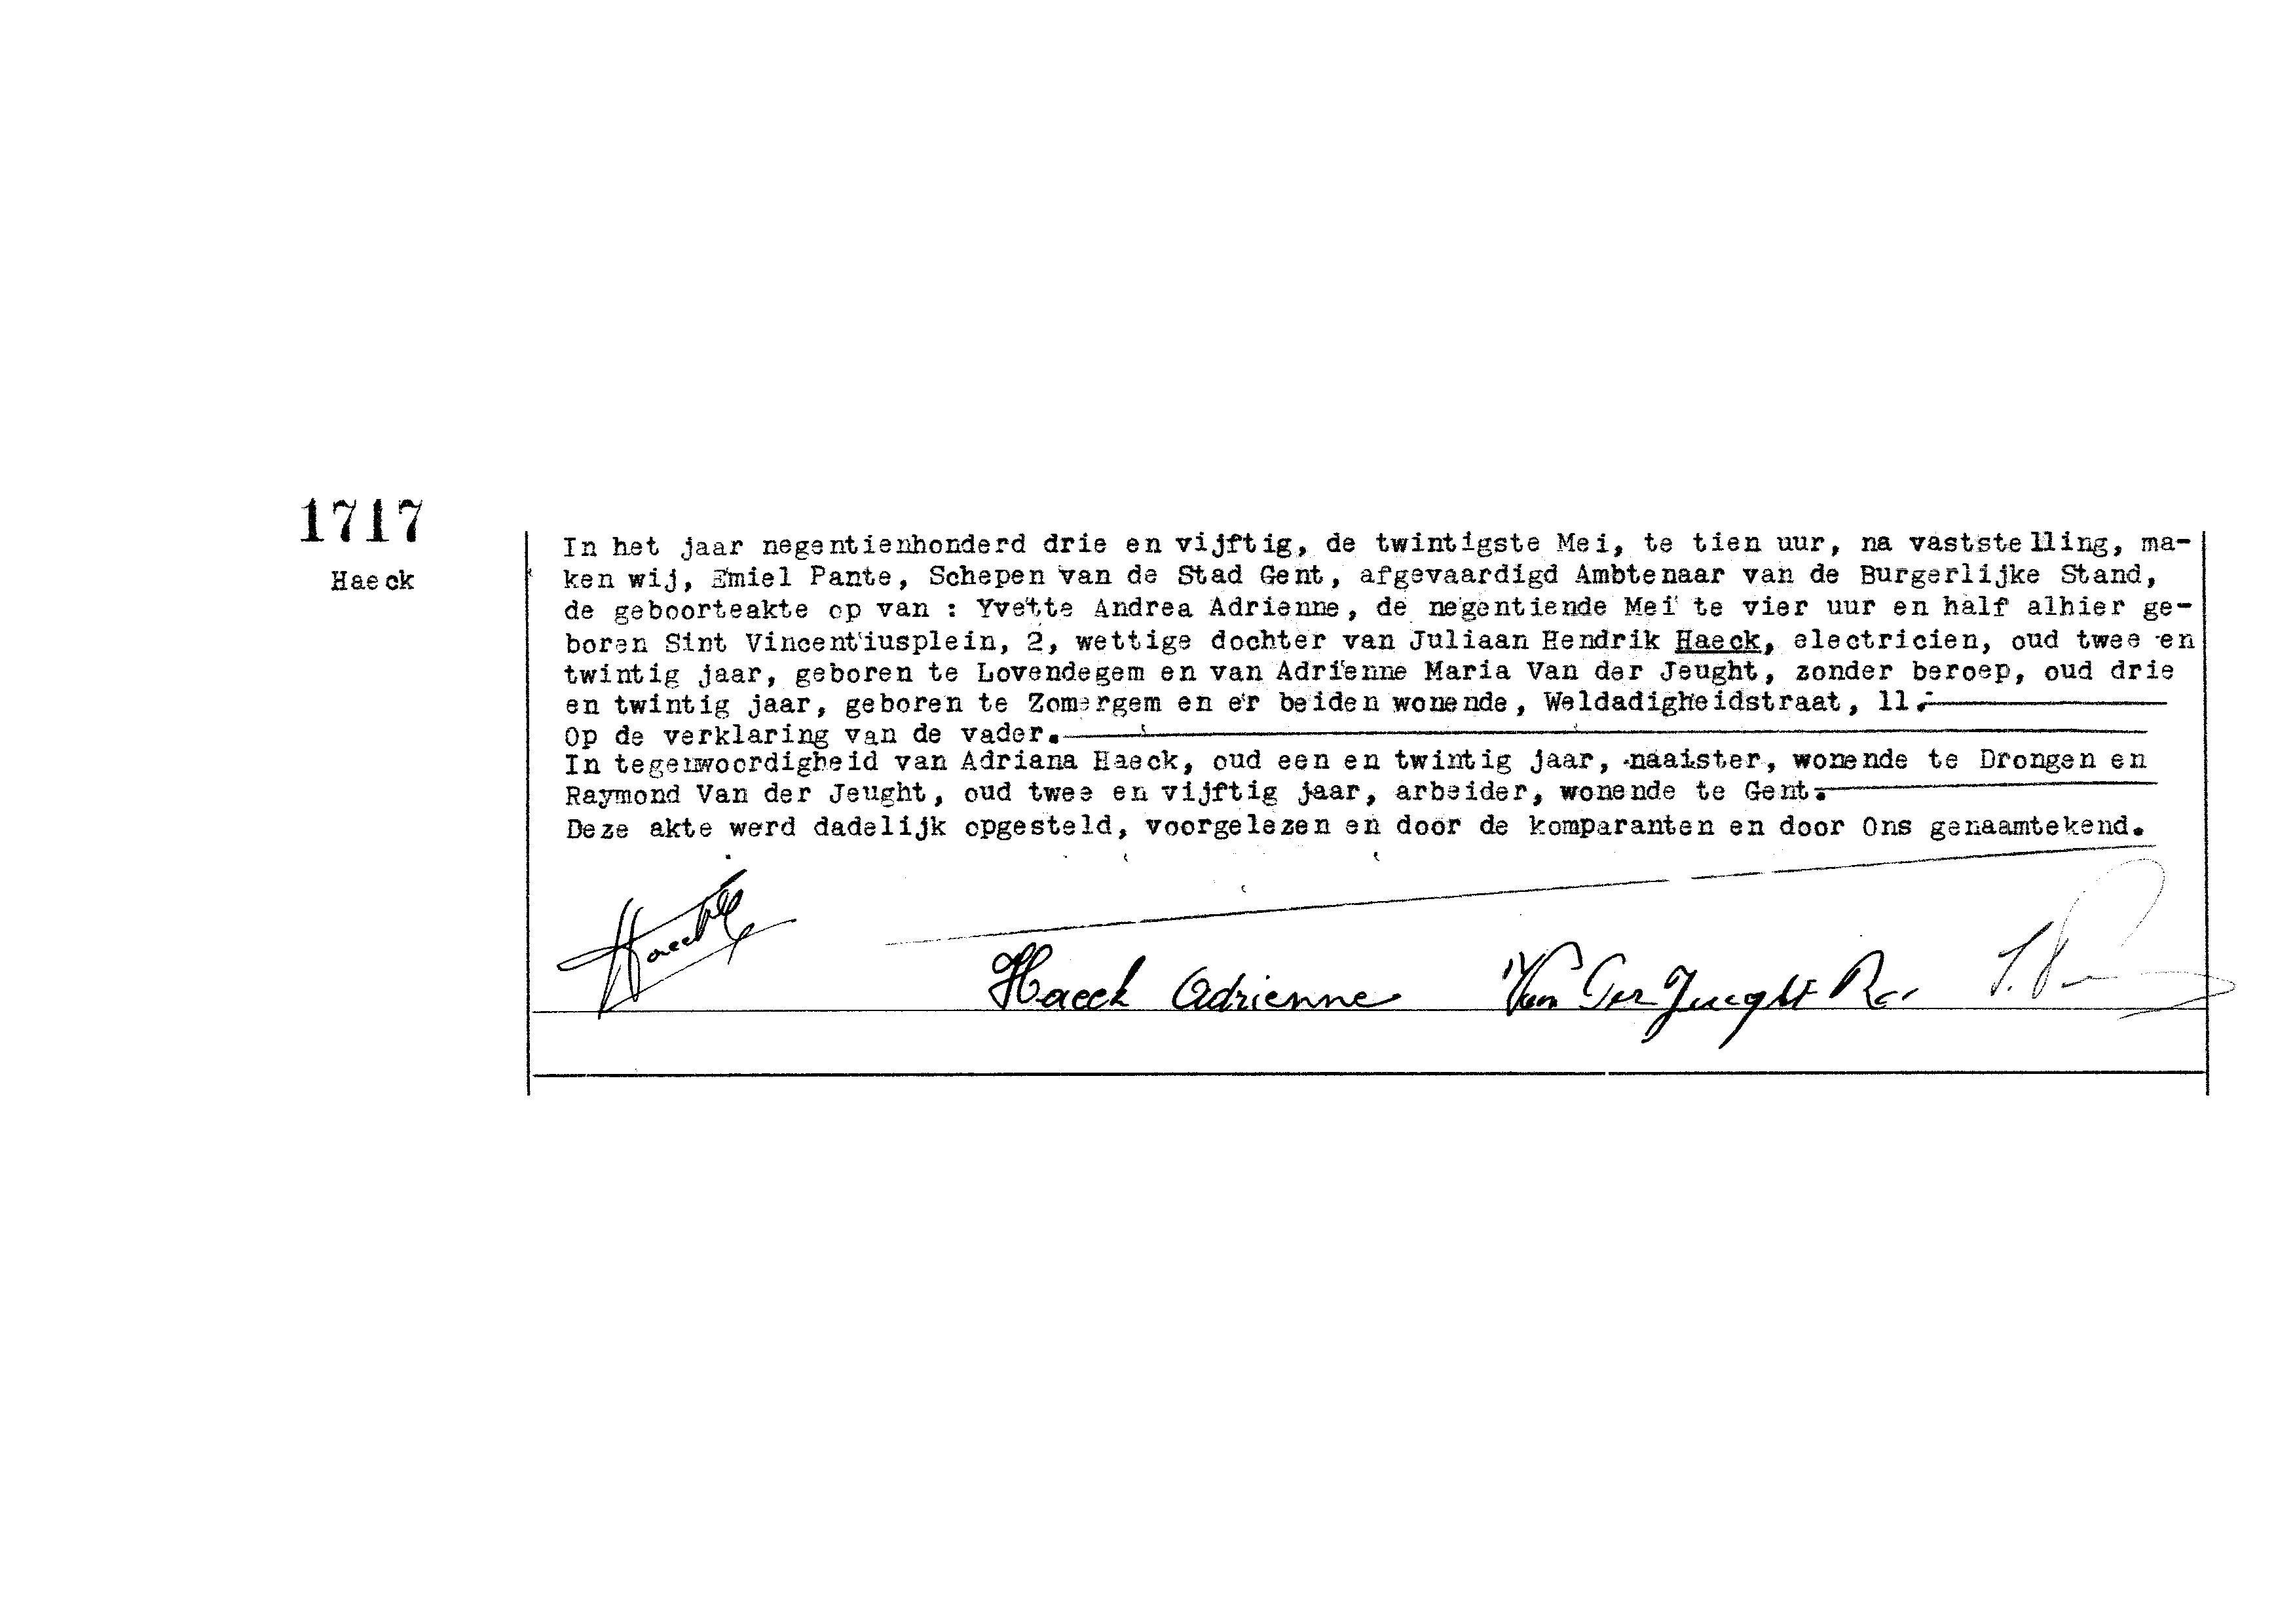 1717
Haeck
In het jaar negentienhonderd drie en vijftig, de twintigste Mei, te tien uur, na vaststelling, ma-
ken wij, Emiel Pante, Schepen van de Stad Gent, afgevaardigd Ambtenaar van de Burgerlijke Stand,
de geboorteakte op van : Yvette Andrea Adrienne, de negentiende Mei te vier uur en half alhier ge-
boren Sint Vincentiusplein, 2, wettige dochter van Juliaan Hendrik Haeck, electricien, oud twee en
twintig jaar, geboren te Lovendegem en van Adrienne Maria Van der Jeught, zonder beroep, oud drie
en twintig jaar, geboren te Zomergem en er beiden wonende, Weldadigheidstraat, 11.-
Op de verklaring van de vader.
In tegenwoordigheid van Adriana Haeck, oud een en twintig jaar, naaister, wonende te Drongen en
Raymond Van der Jeught, oud twee en vijftig jaar, arbeider, wonende te Gent.
Deze akte werd dadelijk opgesteld, voorgelezen en door de komparanten en door Ons genaamtekend.
Haeck Adrienne Van Der Jueght